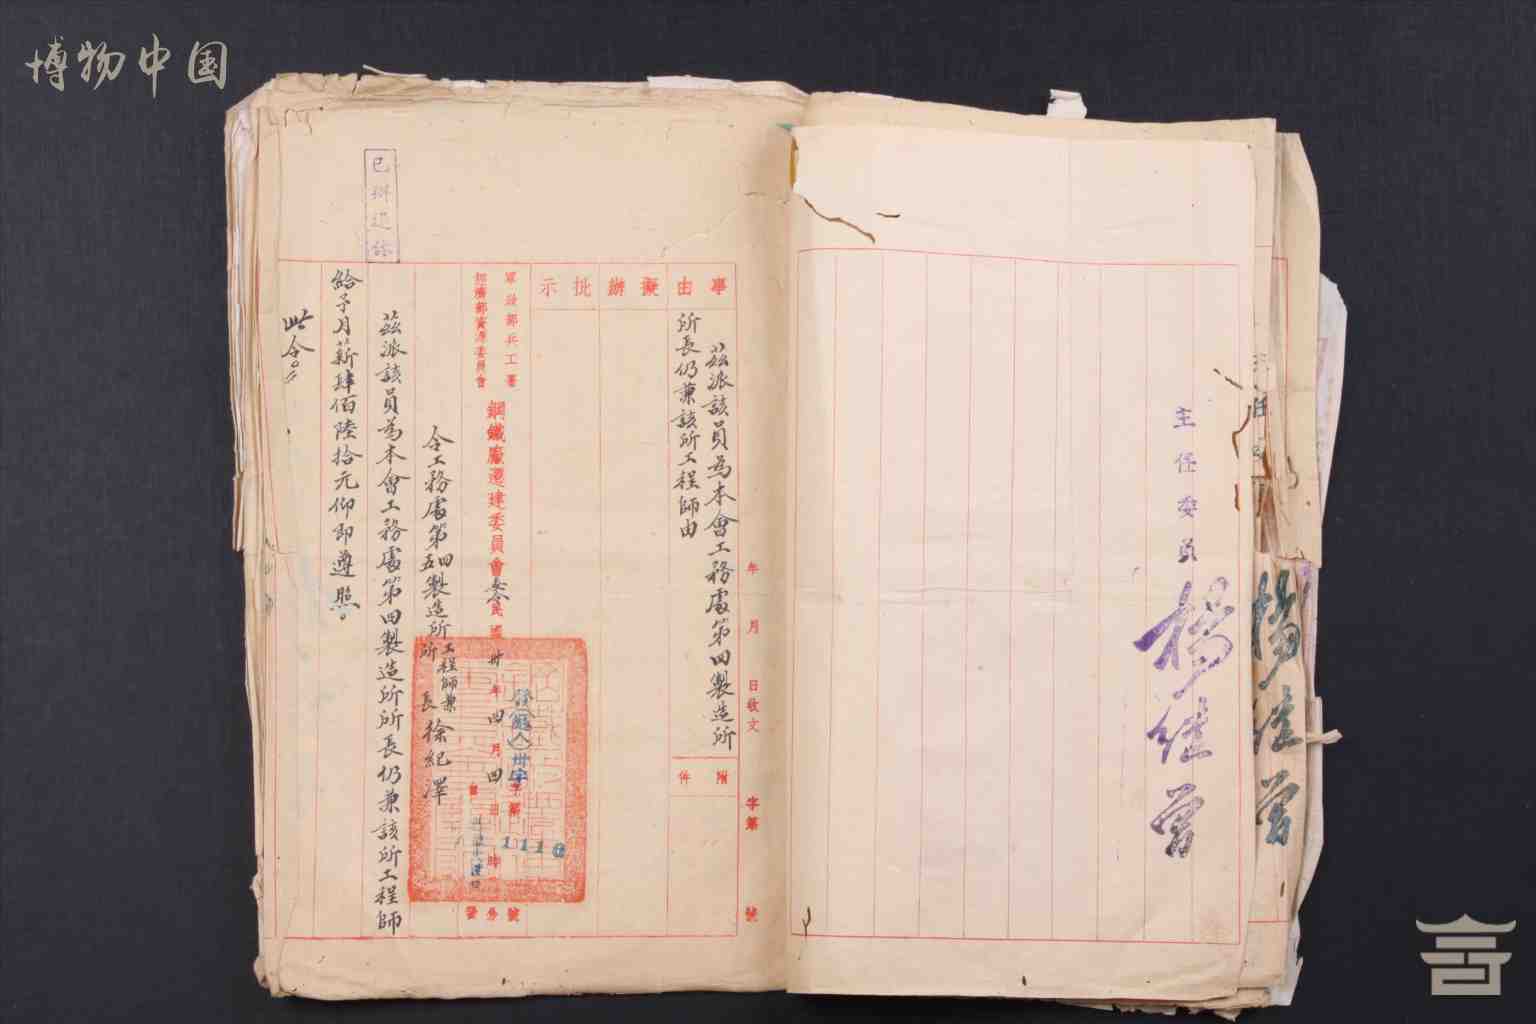 博物中国
主任委員 楊继曾
年 月 日收文 字第 號
事由
茲派該員為本會工務處第四製造所
所長仍兼該所工程師由
附件
擬辦
批示
軍政部兵工署
經濟部資源委員會
鋼鐵廠遷建委員會
民國卅年四月四日
字第1110號
令工務處第四五製造所工程師兼所長徐紀澤
茲派該員為本會工務處第四製造所所長仍兼該所工程師
給予月薪肆佰陸拾元仰即遵照。
此令。
已辦迻錄